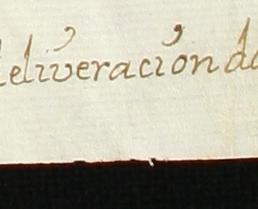 deliveración do